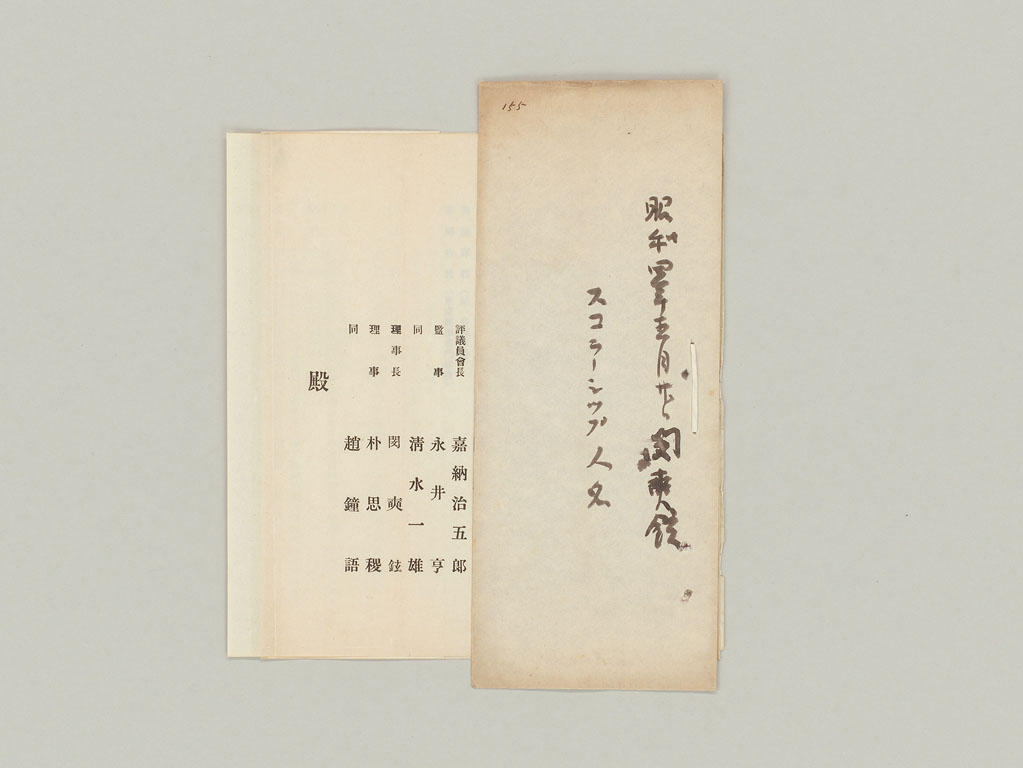 155
昭和四年五月廿七 閔奭鉉
スコラーシップ人名
評議員會長 嘉納治五郎
監事 永井亨
同 淸水一雄
理事長 閔奭鉉
理事 朴思稷
同 趙鐘語
殿